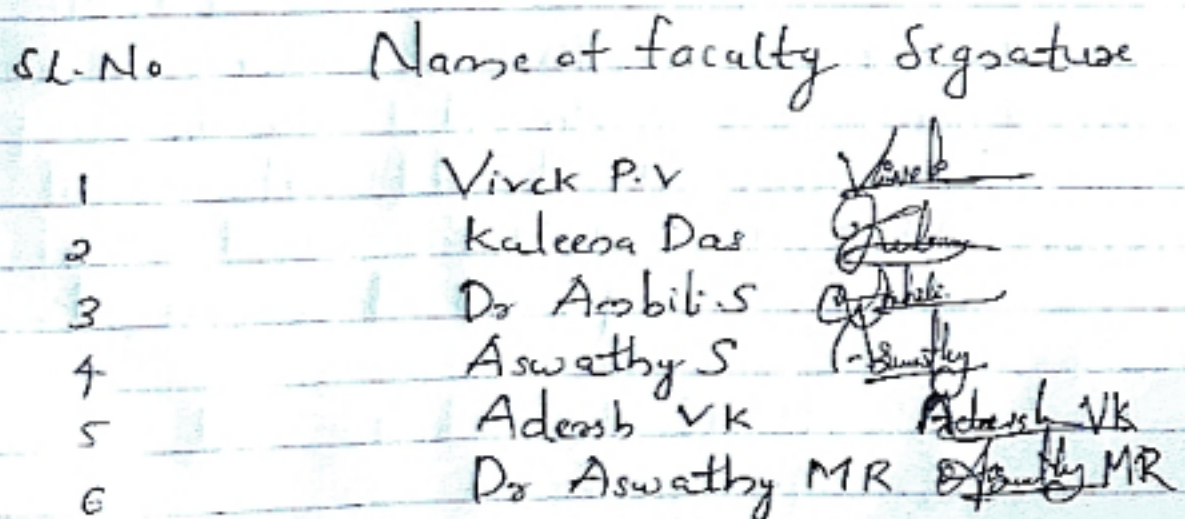 SL.No Name of faculty Signature
1 Vivek P.V Vivek
2 Kaleena Das
3 Dr Ambili.S Ambili
4 Aswathy S Aswathy
5 Adersh VK Adersh VK
6 Dr Aswathy MR Aswathy MR